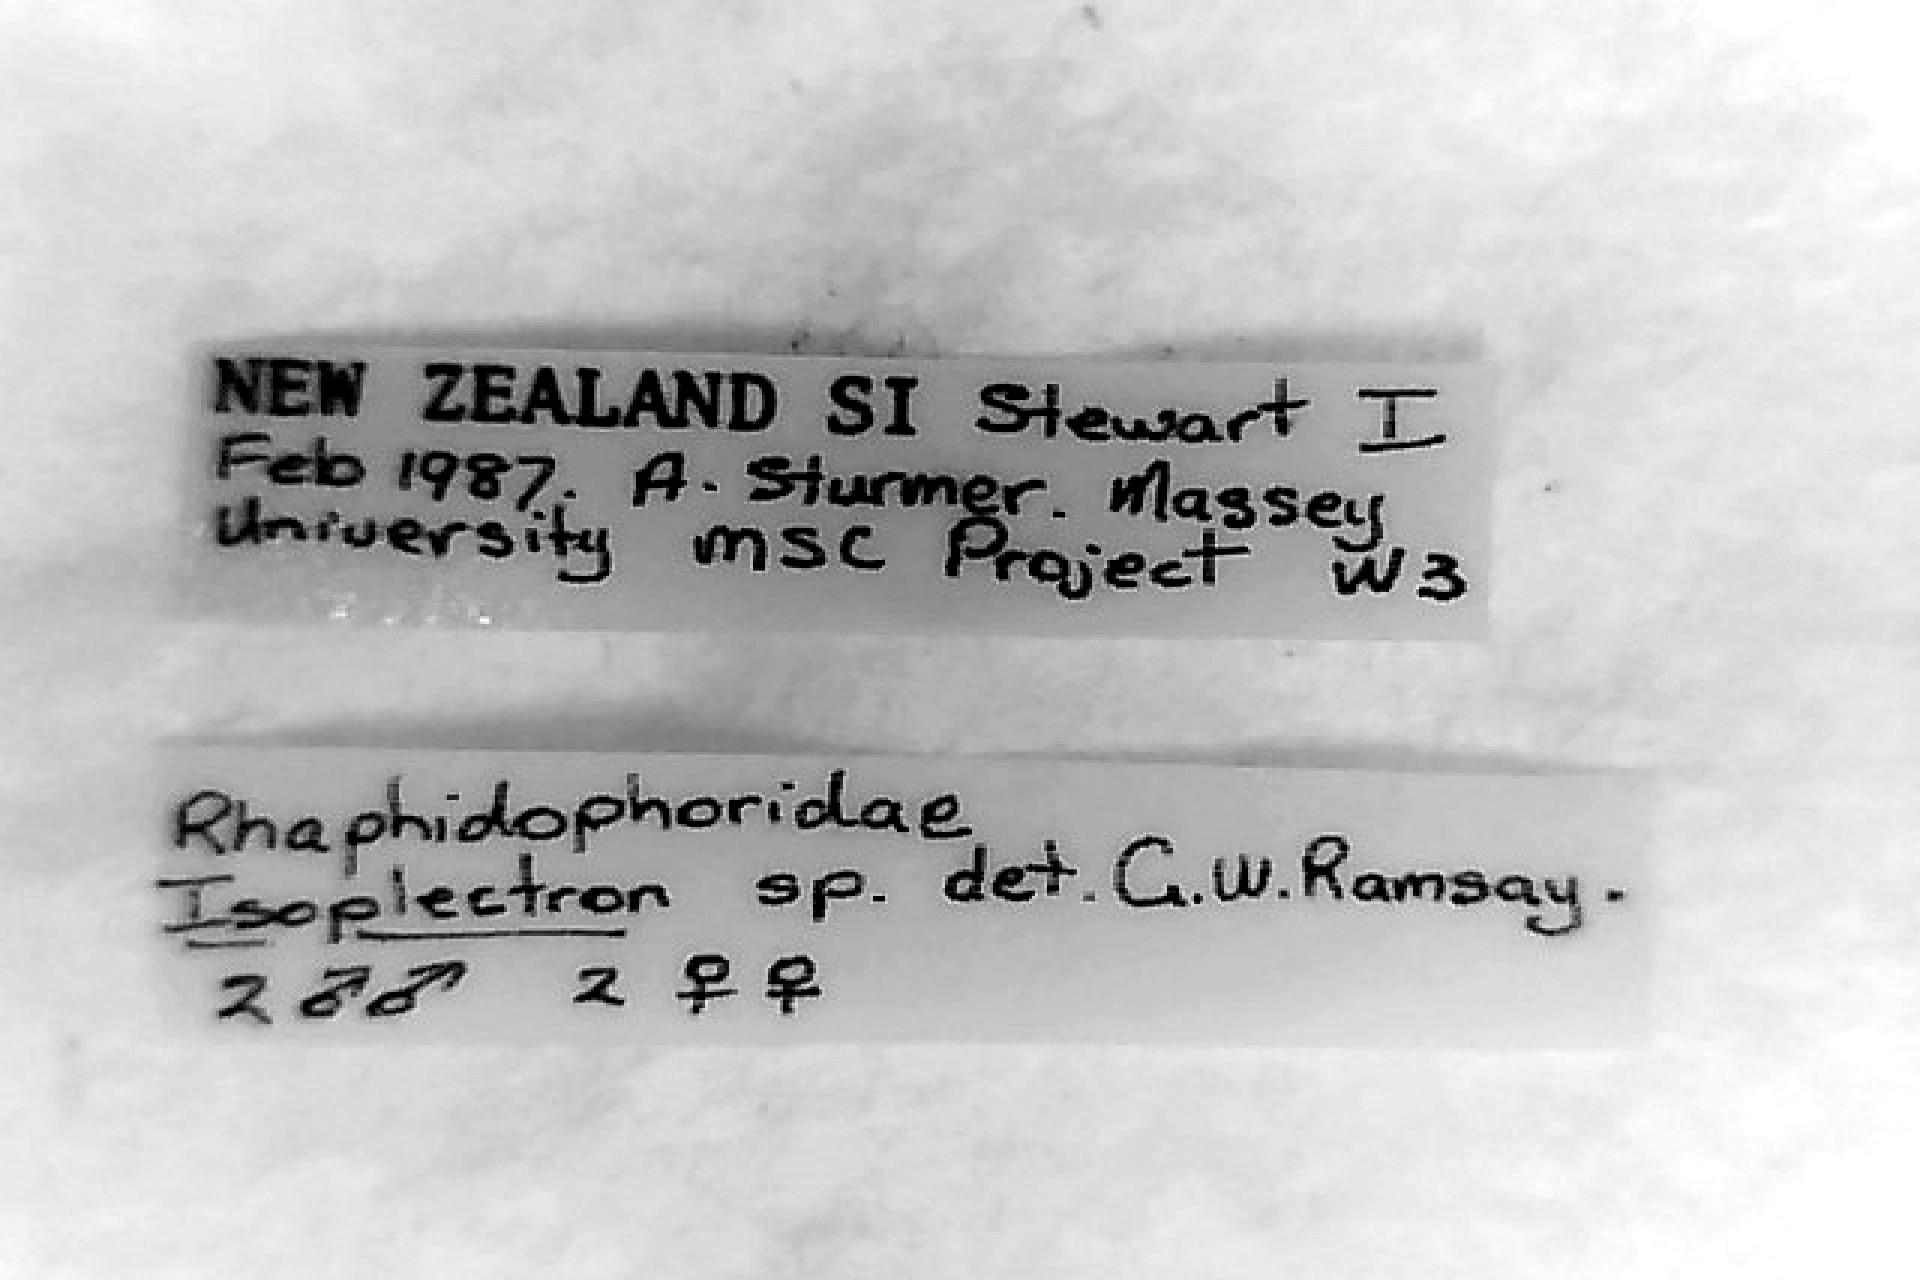 NEW ZEALAND SI Stewart I
Feb 1987. A. Sturmer. Massey
University MSC Project W3
Rhaphidophoridae
Isoplectron sp. det. G.W. Ramsay.
2 ♂♂ 2 ♀♀